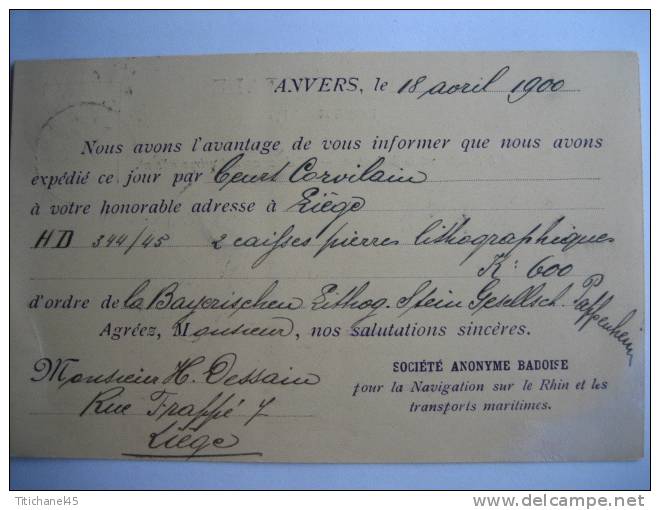 ANVERS, le 18 avril 1900
Nous avons l'avantage de vous informer que nous avons
expédié ce jour par Ceurt Corvilain
à votre honorable adresse à Liége
HD 344/45 2 caisses pierres lithographiques
K: 600
d'ordre de la Bayerischen Lithog. Stein Gesellsch. Pappenheim
Agréez, Monsieur, nos salutations sincères.
Monsieur H. Dessain
Rue Trappé 7
Liége
SOCIÉTÉ ANONYME BADOISE
pour la Navigation sur le Rhin et les
transports maritimes.
Titichane45
delcampe.net